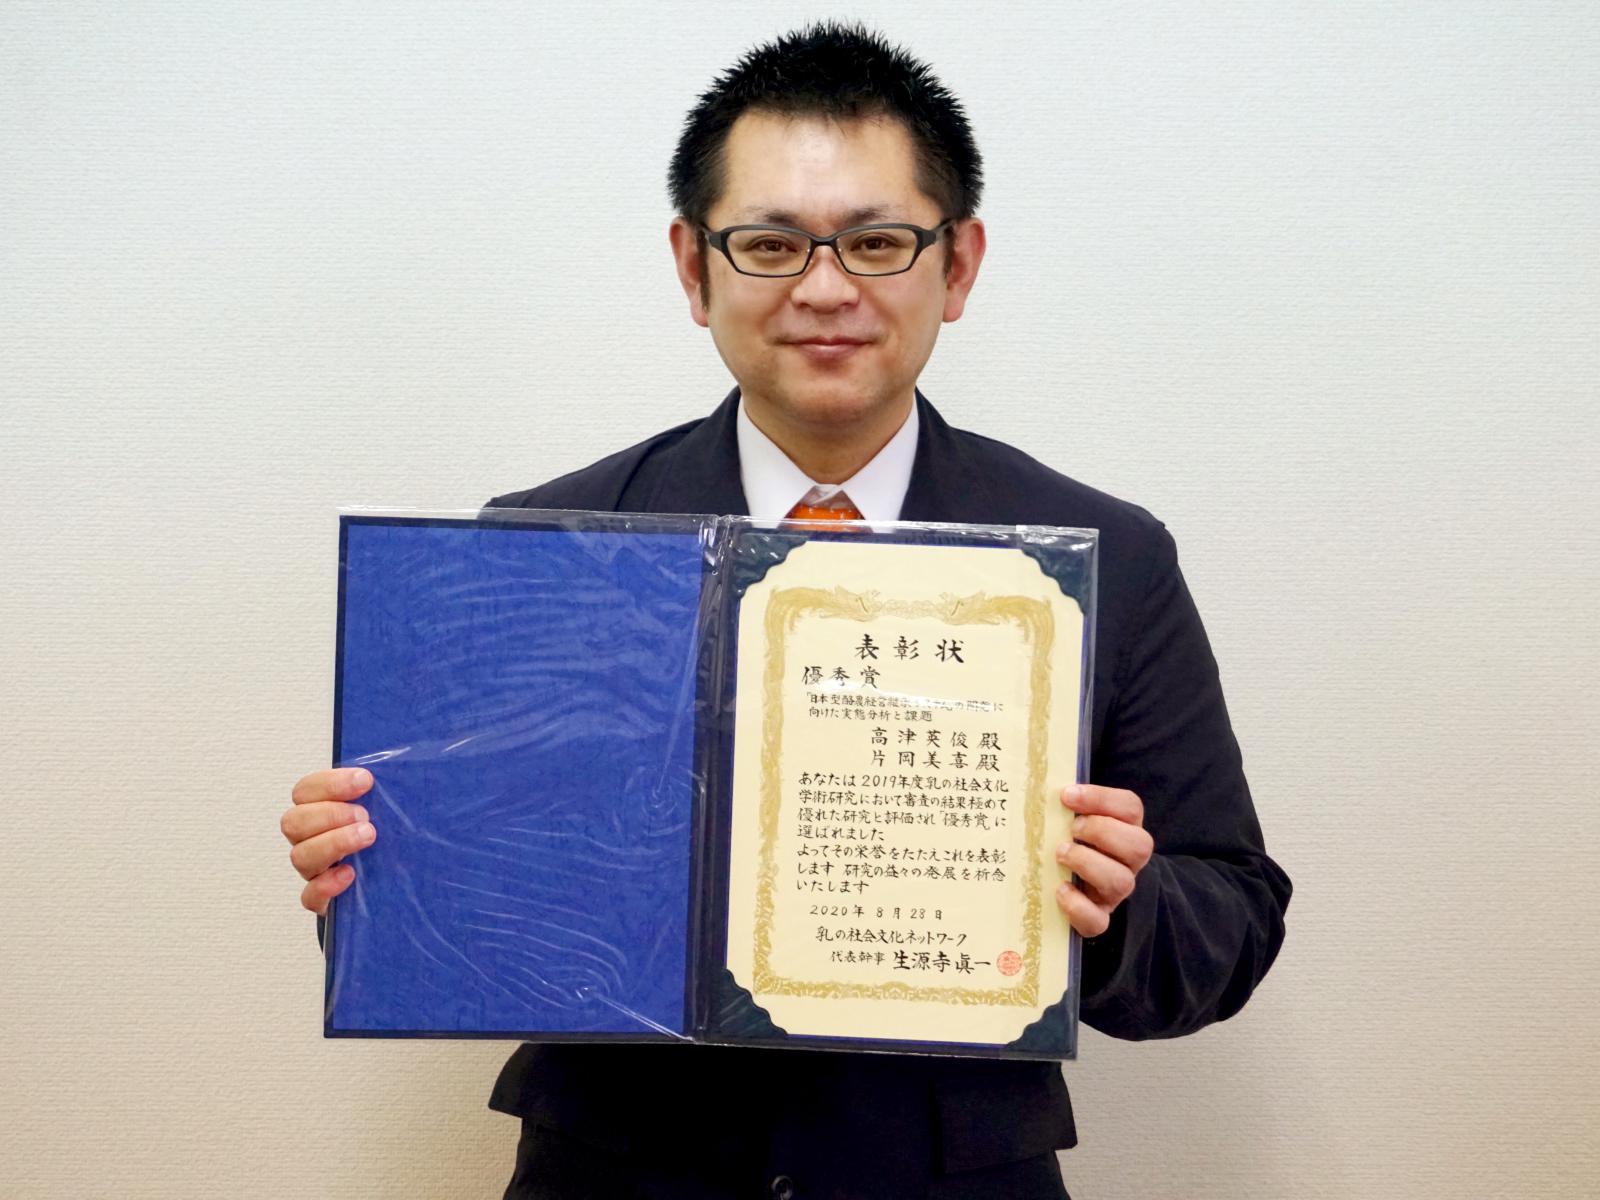 表彰状
優秀賞
「日本型酪農経営継承システムの開発に
向けた実態分析と課題
高津英俊殿
片岡美喜殿
あなたは2019年度乳の社会文化
学術研究において審査の結果極めて
優れた研究と評価され「優秀賞」に
選ばれました
よってその栄誉をたたえこれを表彰
します 研究の益々の発展を祈念
いたします
2020年 8月 28日
乳の社会文化ネットワーク
代表幹事 生源寺眞一